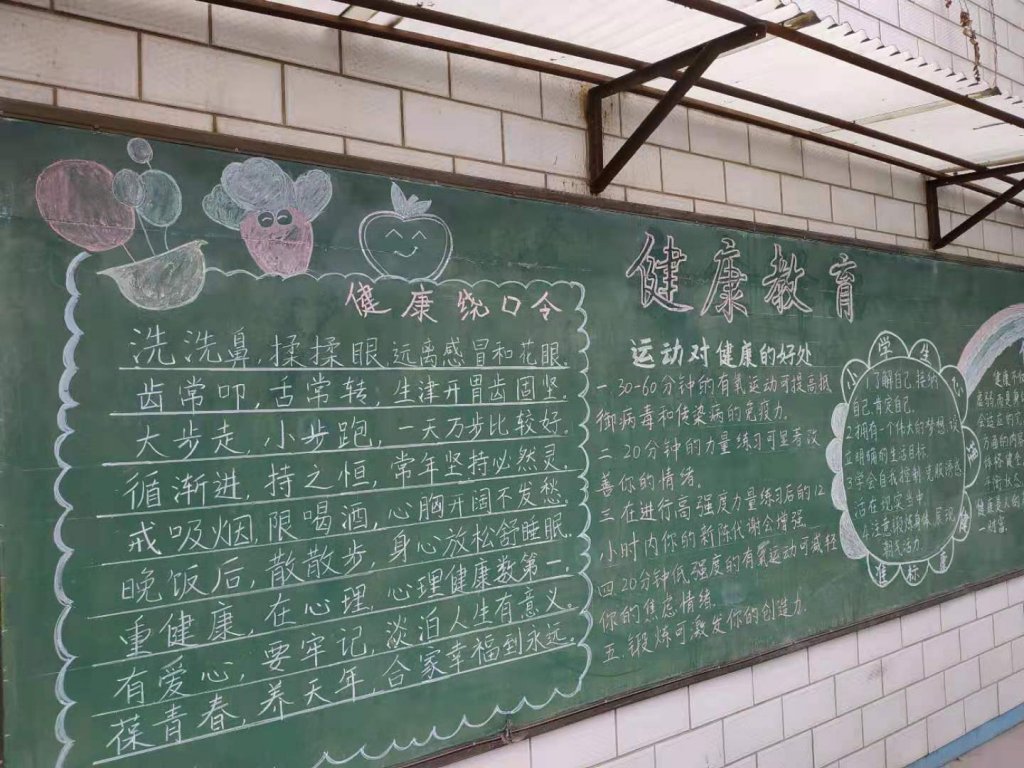 健康绕口令
洗洗鼻,揉揉眼,远离感冒和花眼
齿常叩,舌常转,生津开胃齿固坚.
大步走,小步跑,一天万步比较好.
循渐进,持之恒,常年坚持必然灵.
戒吸烟,限喝酒,心胸开阔不发愁.
晚饭后,散散步,身心放松舒睡眠.
重健康,在心理,心理健康数第一.
有爱心,要牢记,淡泊人生有意义.
葆青春,养天年,合家幸福到永远.
健康教育
运动对健康的好处
一 30-60分钟的有氧运动可提高抵
御病毒和传染病的免疫力.
二 20分钟的力量练习可显著改
善你的情绪.
三 在进行高强度力量练习后的12
小时内你的新陈代谢会增强
四 20分钟低强度的有氧运动可减轻
你的焦虑情绪.
五 锻炼可激发你的创造力.
学生
心
准标康
1.了解自己 接纳
自己 肯定自己.
2.拥有一个伟大的梦想
明确的生活目标.
活在现实中.